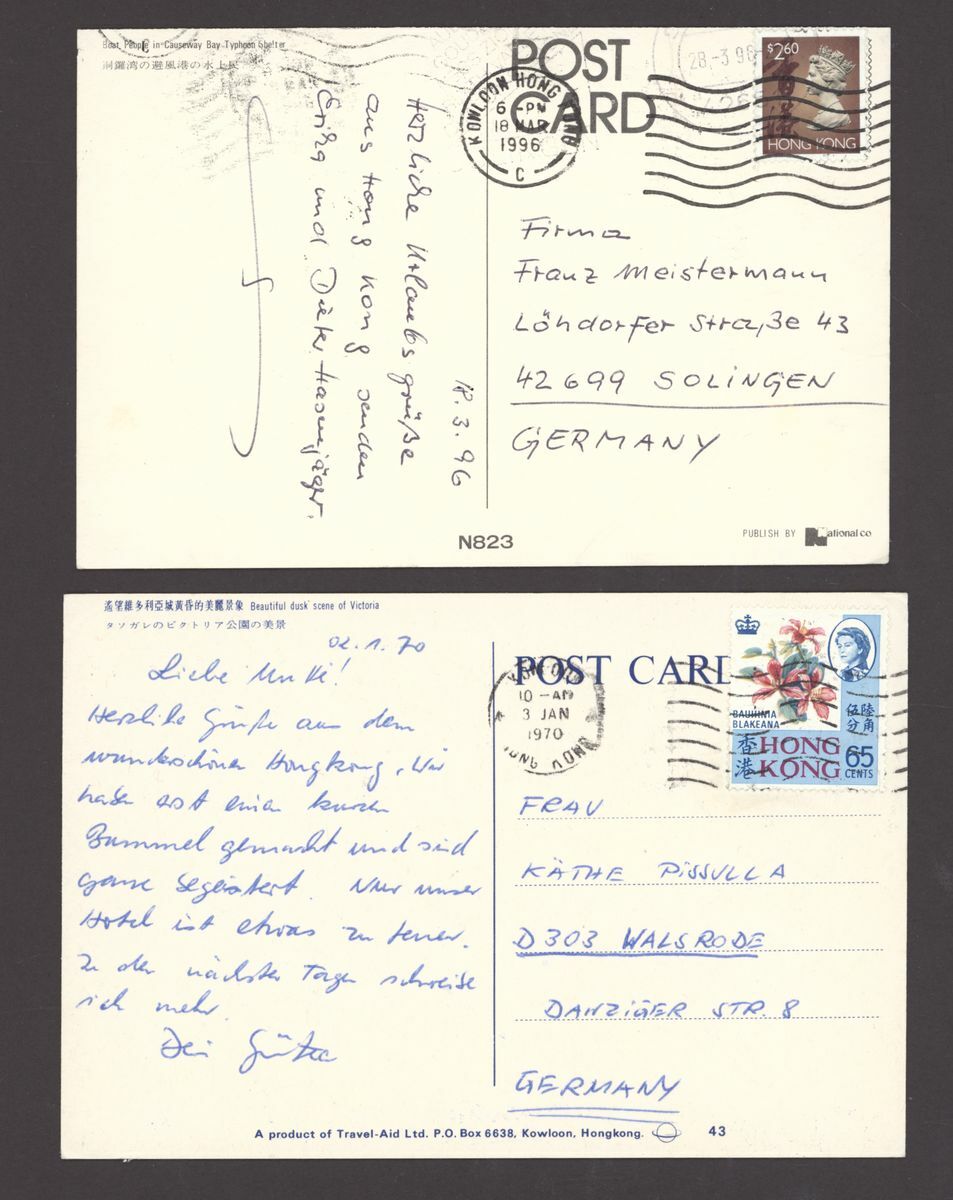 Boat People in Causeway Bay Typhoon Shelter
洞鑼湾の避風港の水上民
POST
CARD
KOWLOON HONG KONG
6 - PM
18 MAR
1996
C
28.-3.96
$2.60
香港
HONG KONG
18.3.96
Herzliche Urlaubsgrüße
aus Hong Kong senden
Erika und Dieter Hasenjäger.
Firma
Franz Meistermann
Löhdorfer Straße 43
42699 SOLINGEN
GERMANY
N823
PUBLISH BY National co
遙望維多利亞城黃昏的美麗景象 Beautiful dusk scene of Victoria
タソガレのビクトリア公園の美景
02.1.70
Liebe Mutti!
Herzliche Grüße aus dem
wunderschönen Hongkong. Wir
haben erst einen kurzen
Bummel gemacht und sind
ganz begeistert. Nur unser
Hotel ist etwas zu teuer.
In den nächsten Tagen schreibe
ich mehr.
Dein Günter
POST CARD
10 - AM
3 JAN
1970
HONG KONG
BAUHINIA
BLAKEANA
伍陸
分角
香港
HONG
KONG
65
CENTS
FRAU
KÄTHE PISSULLA
D 303 WALSRODE
DANZIGER STR. 8
GERMANY
A product of Travel-Aid Ltd. P.O. Box 6638, Kowloon, Hongkong. 43